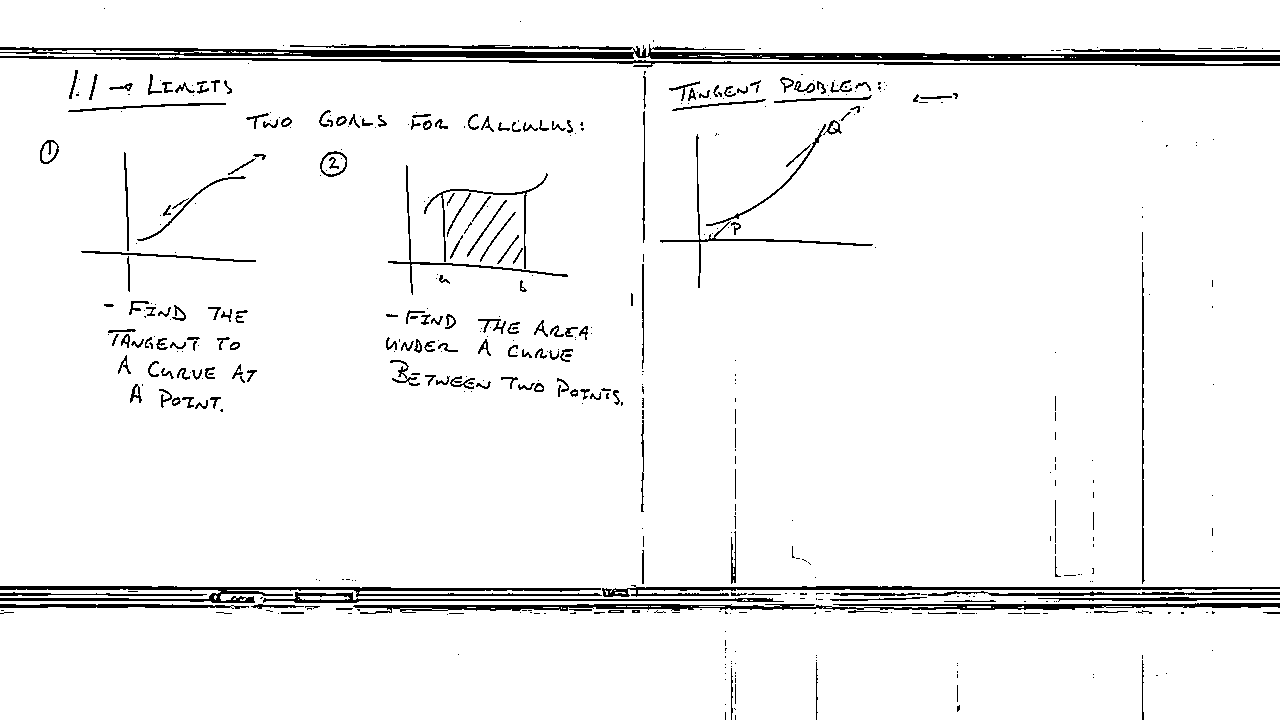 1.1 → LIMITS
TWO GOALS FOR CALCULUS:
①
- FIND THE
TANGENT TO
A CURVE AT
A POINT.
②
a b
- FIND THE AREA
UNDER A CURVE
BETWEEN TWO POINTS.
TANGENT PROBLEM:
Q
P